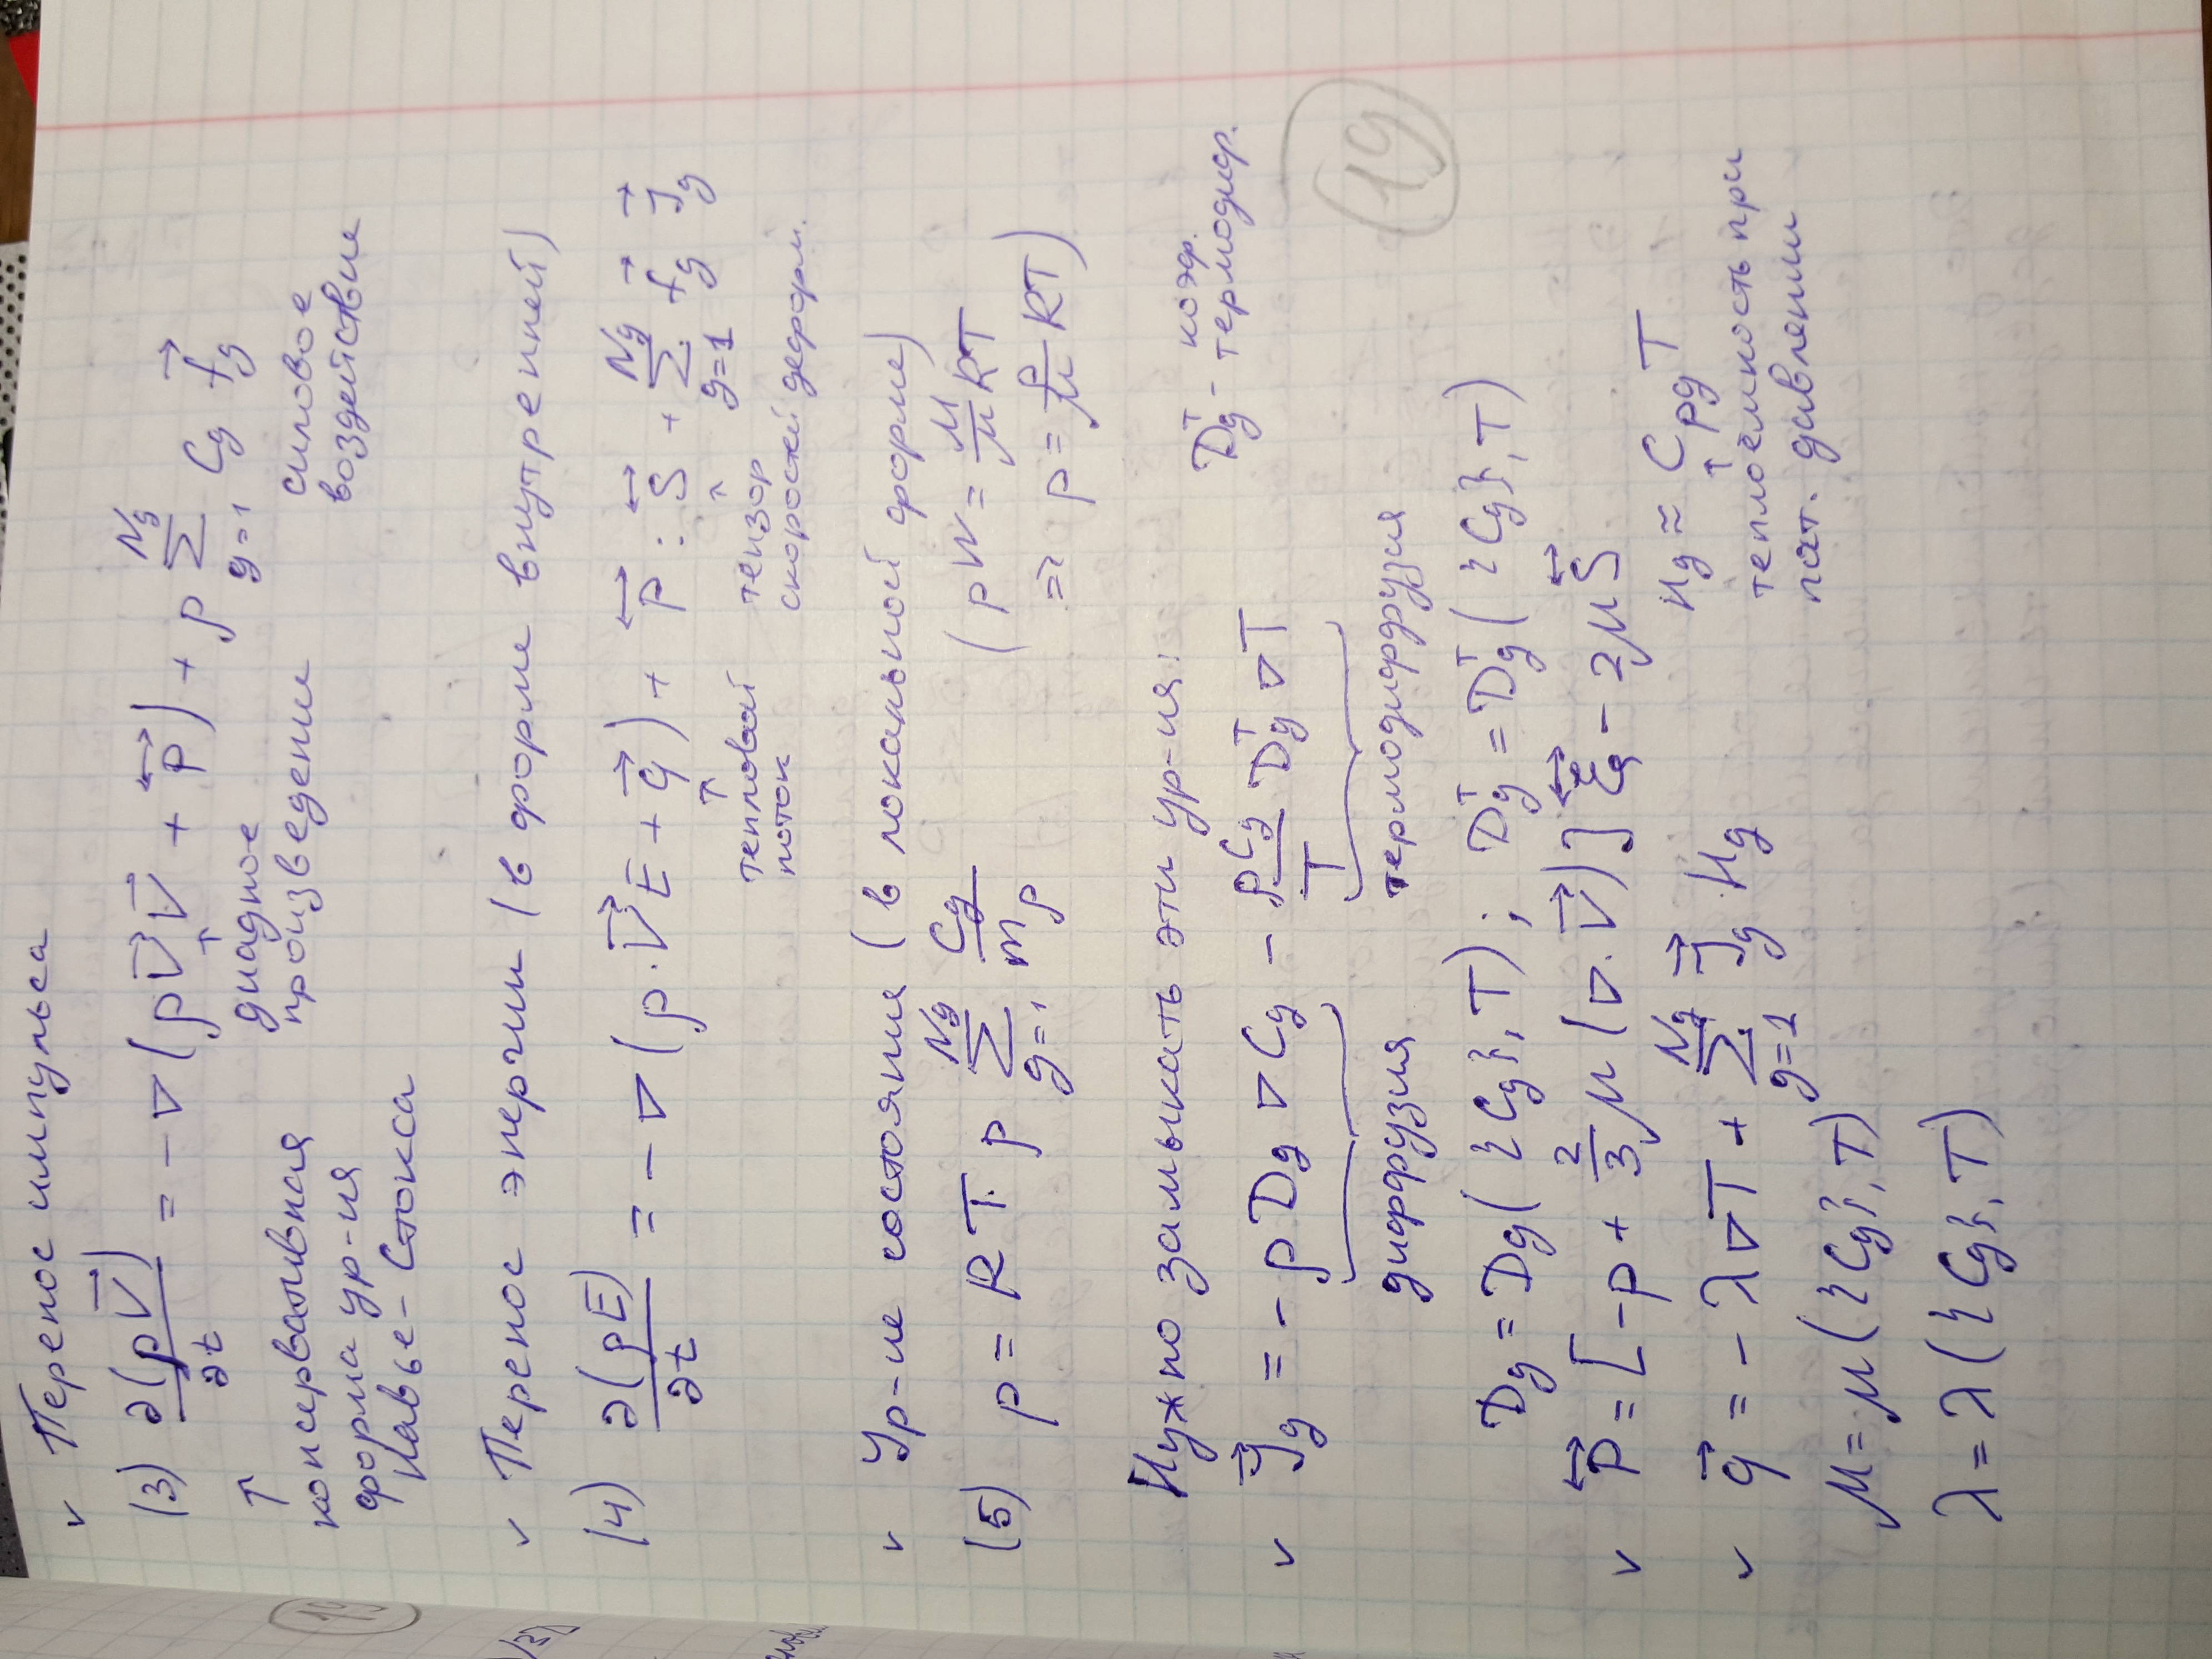 ✓ Перенос импульса
(3) ∂(ρV⃗)/∂t = -∇(ρV⃗V⃗ + P⃡) + ρ Σ_{g=1}^{Ng} Cg f⃗g
↑ консервативная форма ур-ия Навье-Стокса
↑ диадное произведение
силовое воздействие
✓ Перенос энергии (в форме внутренней)
(4) ∂(ρE)/∂t = -∇(ρ·V⃗E + q⃗) + P⃡ : S⃡ + Σ_{g=1}^{Ng} f⃗g J⃗g
↑ тепловой поток
↑ тензор скоростей деформ.
✓ Ур-ие состояние (в локальной форме)
(5) p = RT·ρ Σ_{g=1}^{Ng} Cg/mρ
(pW = M/μ RT
⇒ p = ρ/μ RT)
Нужно замыкать эти ур-ия:
Dg^T - коэф. термодиф.
✓ J⃗g = -ρDg∇Cg - ρCg/T Dg^T ∇T
диффузия
термодиффузия
19
Dg = Dg({Cg}, T); Dg^T = Dg^T({Cg}, T)
✓ P⃡ = [-p + 2/3 μ(∇·V⃗)] ξ⃡ - 2μS⃡
✓ q⃗ = -λ∇T + Σ_{g=1}^{Ng} J⃗g Hg
Hg ≈ CpgT
↑ теплоёмкость при
пат. давлении
μ = μ({Cg}, T)
λ = λ({Cg}, T)